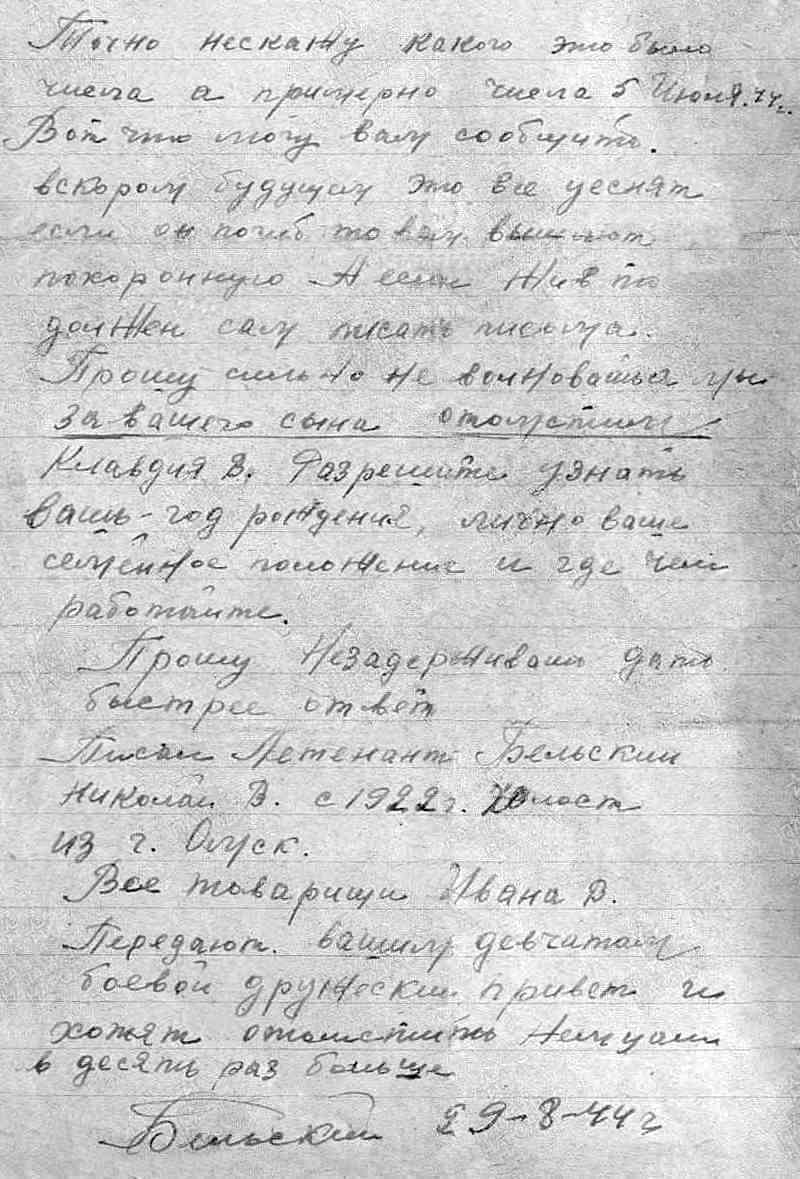 Точно нескажу какого это было
числа а примерно числа 5 Июля. 44г.
Вот что могу вам сообщить.
вскором будущем это все уеснят
если он погиб то вам вышлют
похоронную А если жив то
должен сам писать письма.
Прошу сильно не волноваться мы
за вашего сына отомстим
Клавдия В. Разрешите узнать
вашь-год рождения, лично ваше
семейное положение и где чем
работаите.
Прошу Незадерживать дать
быстрее ответ
Писал Летенант Бельский
Николай В. с 1922 г. Холост
из г. Омск.
Все товарищи Ивана В.
Передают. вашим девчатам
боевой дружеский привет и
хотят отомстить Немцам
в десять раз больше
Бельский 29-8-44г